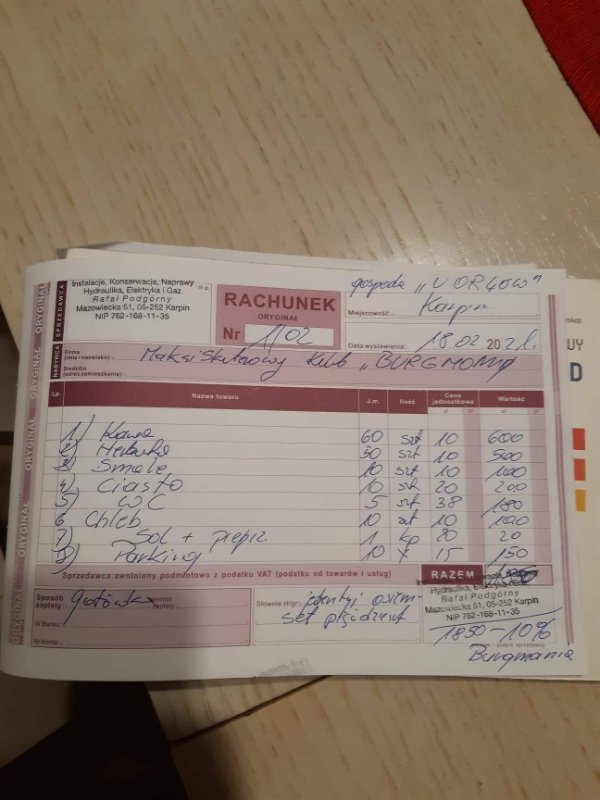 Instalacje, Konserwacja, Naprawy
Hydraulika, Elektryka i Gaz
Rafał Podgórny
Mazowiecka 51, 05-252 Karpin
NIP 762-168-11-35
m.p.
SPRZEDAWCA
RACHUNEK
ORYGINAŁ
Nr 1/02
gospoda "U ORŁÓW"
Miejscowość: Karpin
Data wystawienia: 18.02.202
NABYWCA
Firma
(imię i nazwisko): Maksi Skuterowy Klub "BURGMANIA
Siedziba
(adres zamieszkania):
Lp. Nazwa towaru J.m. Ilość Cena jednostkowa Wartość
zł gr zł gr
1) Kawa 60 szt 10 600
2) Herbata 50 szt 10 500
3) 10 szt 10 100
4) Ciasto 10 szt 20 200
5) WC 5 szt 38
6 Chleb 10 szt 10 100
7) Sol + pieprz 1 kp 20 20
8) Parking 10 x 15 150
Sprzedawca zwolniony podmiotowo z podatku VAT (podatku od towarów i usług) RAZEM
Sposób
zapłaty: gotówka
Termin
zapłaty:
W Banku:
Nr konta:
Słownie zł/gr:
Hydraulika, Elektryka
Rafał Podgórny
Mazowiecka 51, 05-252 Karpin
NIP 762-168-11-35
1850-10%
Burgmania
ORYGINAŁ ORYGINAŁ ORYGINAŁ ORYGINAŁ ORYGINAŁ